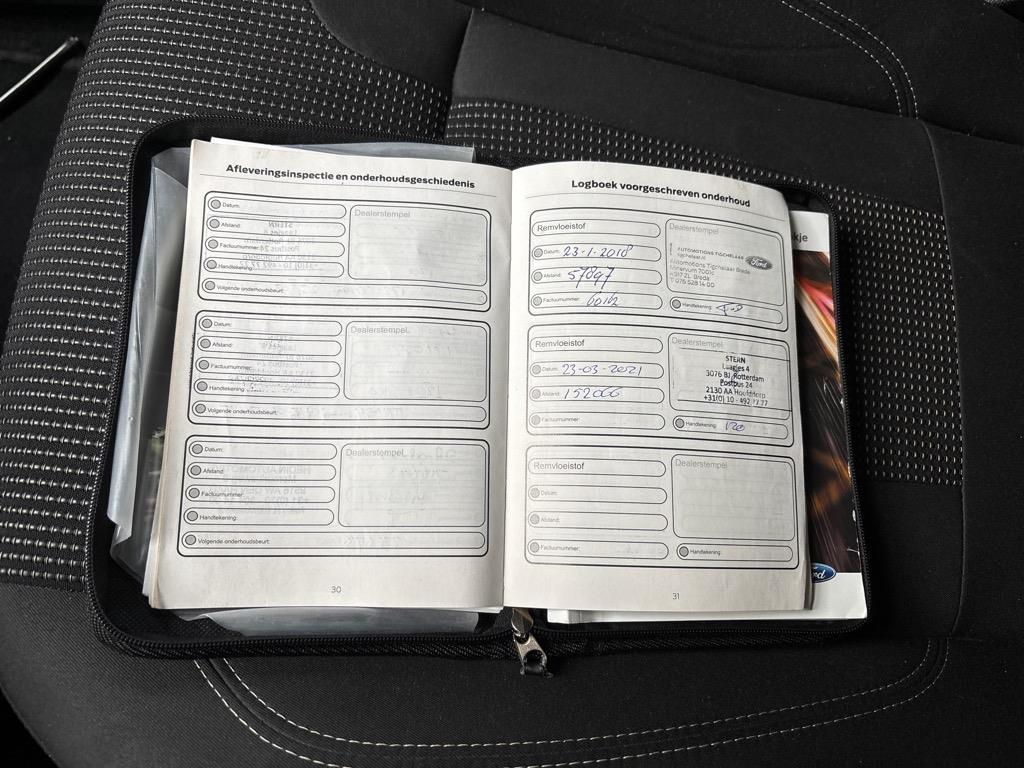 Afleveringsinspectie en onderhoudsgeschiedenis
Datum:
Afstand:
Factuurnummer:
Handtekening:
Volgende onderhoudsbeurt:
Dealerstempel
Datum:
Afstand:
Factuurnummer:
Handtekening:
Volgende onderhoudsbeurt:
Dealerstempel
Datum:
Afstand:
Factuurnummer:
Handtekening:
Volgende onderhoudsbeurt:
Dealerstempel
30
Logboek voorgeschreven onderhoud
Remvloeistof
Datum: 23-1-2018
Afstand: 57897
Factuurnummer:
Dealerstempel
AUTOMOTIONS TIGCHELAAR
tigchelaar.nl
Ford
Automotions Tigchelaar Breda
Minervum 7001c
4817 ZL Breda
T 076 528 14 00
Handtekening:
Remvloeistof
Datum: 23-03-2021
Afstand: 152066
Factuurnummer:
Dealerstempel
STERN
Laagjes 4
3076 BJ Rotterdam
Postbus 24
2130 AA Hoofddorp
+31(0) 10 - 492 77 77
Handtekening:
Remvloeistof
Datum:
Afstand:
Factuurnummer:
Dealerstempel
Handtekening:
31
kje
Ford